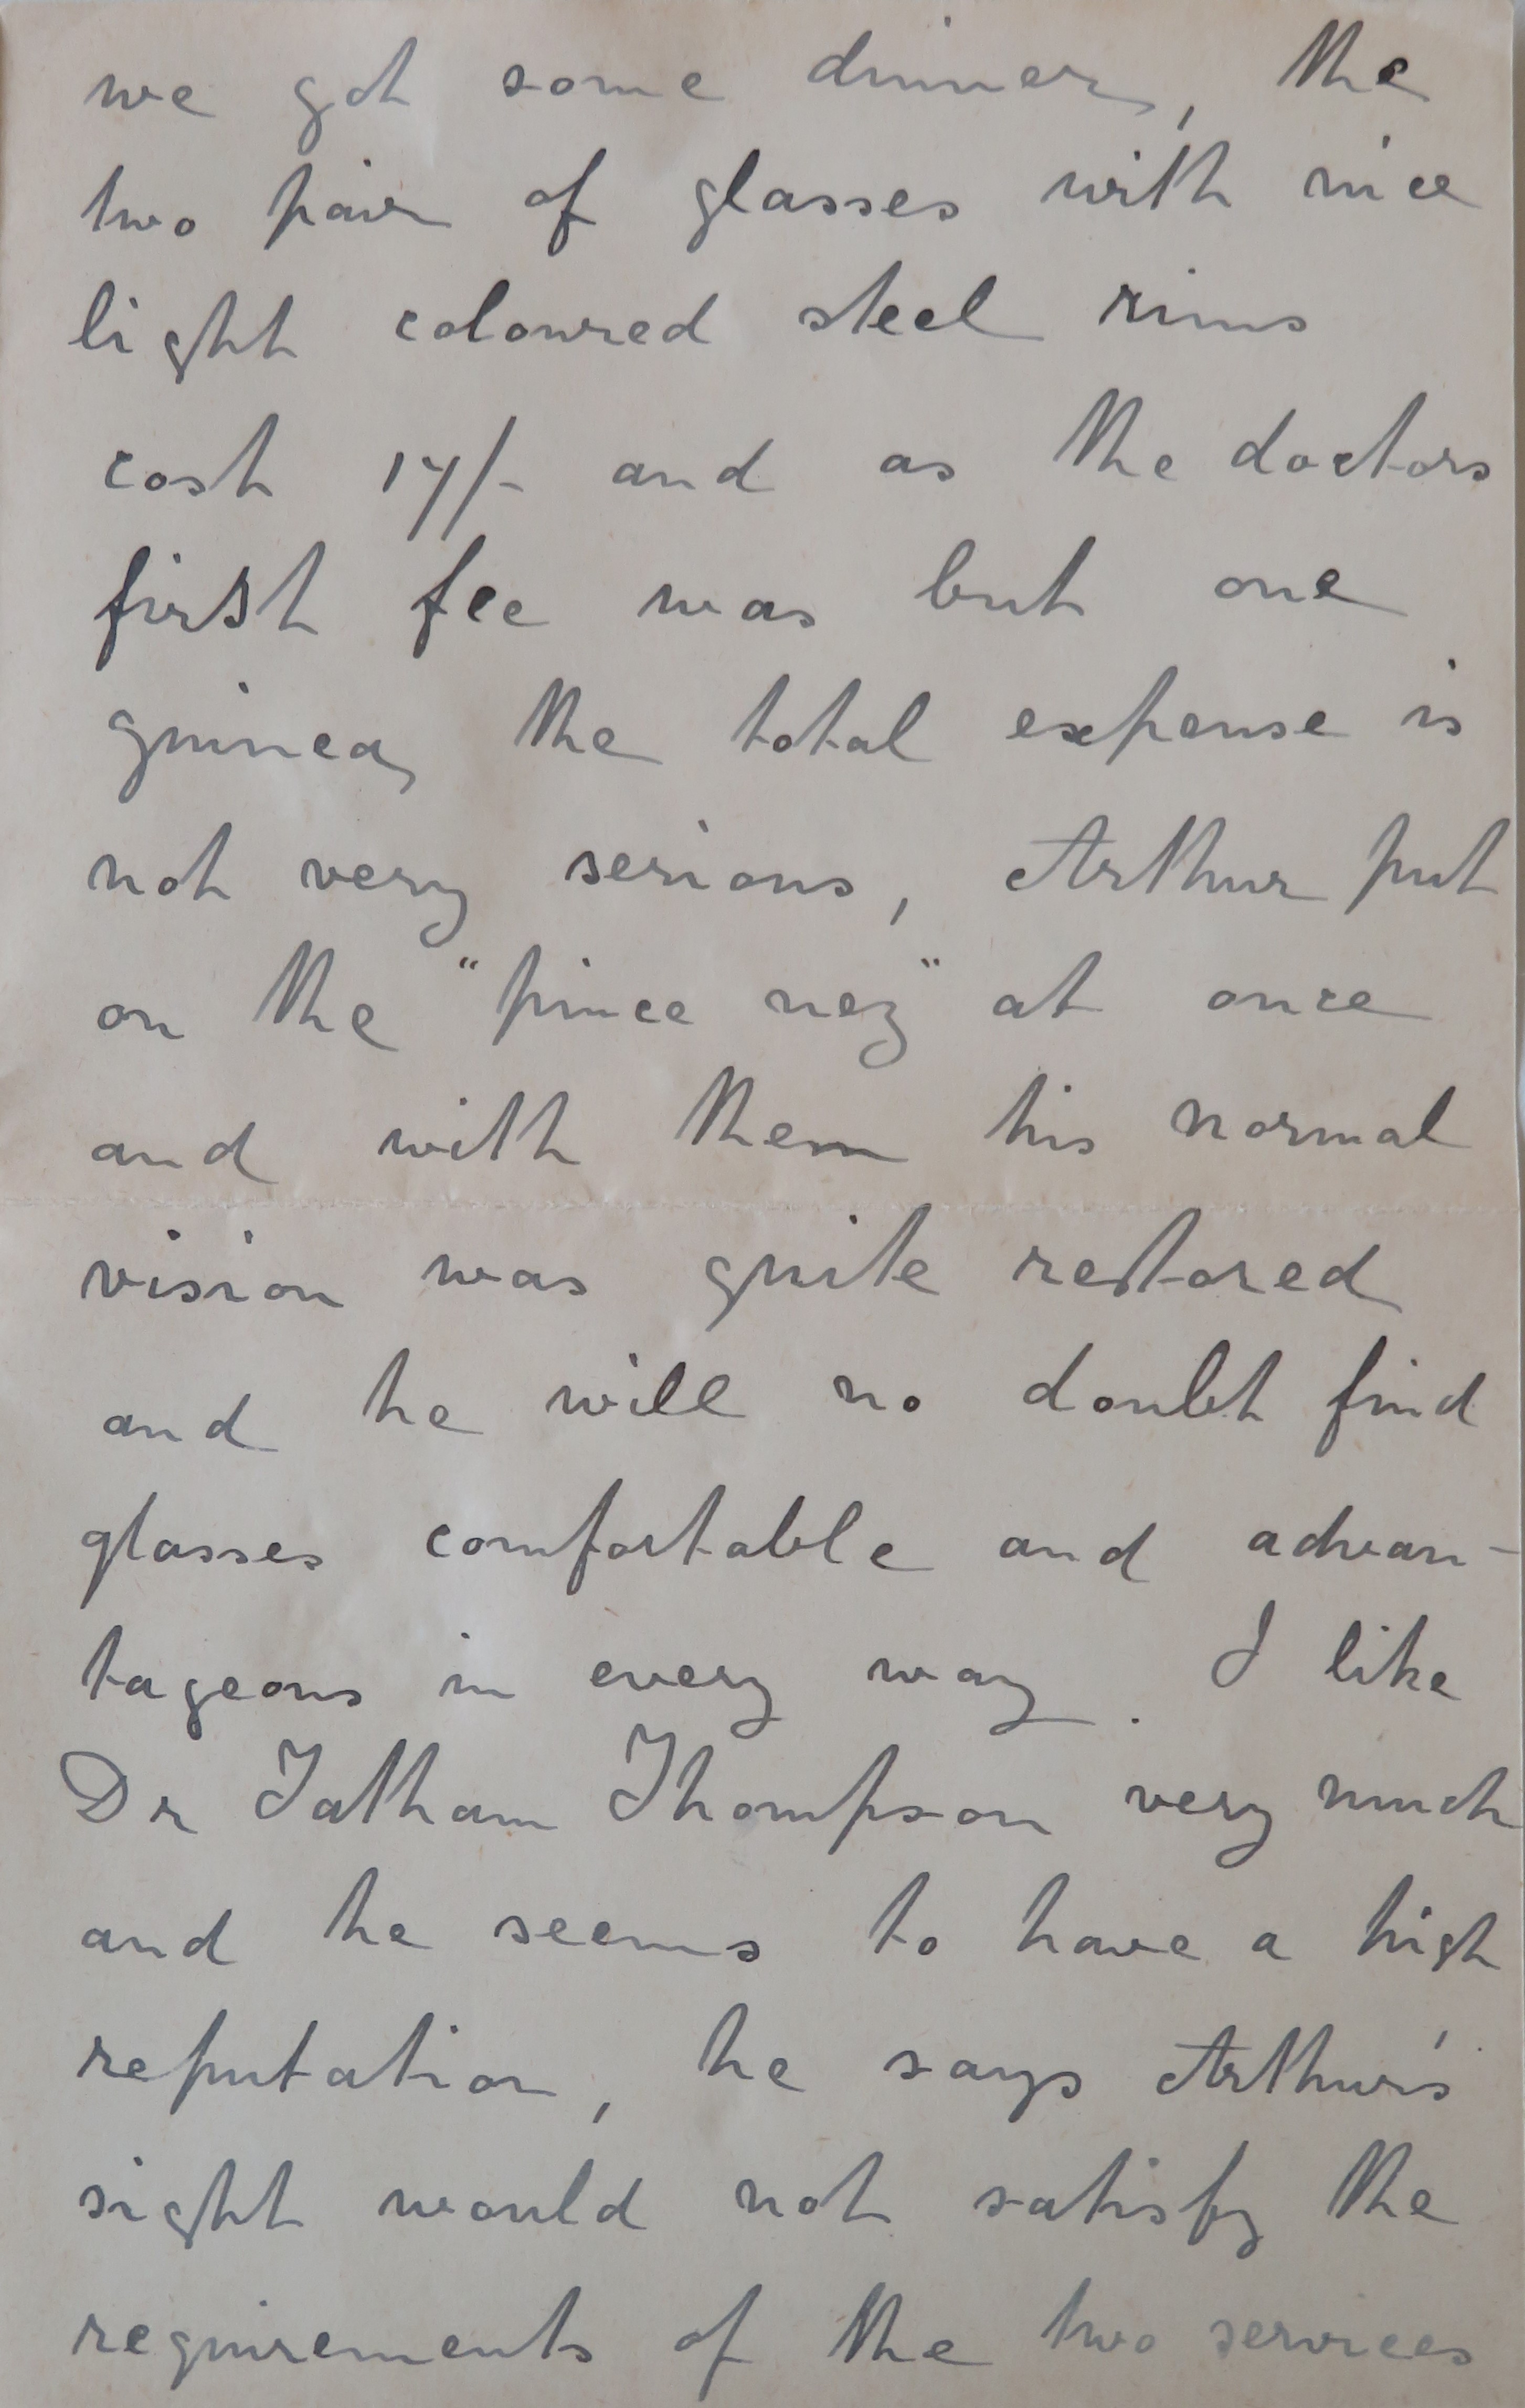 we got some dinner, the
two pair of glasses with nice
light coloured steel rims
cost 17/- and as the doctors
first fee was but one
guinea, the total expense is
not very serious, Arthur put
on the "pince nez" at once
and with them his normal
vision was quite restored
and he will no doubt find
glasses comfortable and advan-
tageous in every way. I like
Dr Tatham Thompson very much
and he seems to have a high
reputation, he says Arthur's
sight would not satisfy the
requirements of the two services